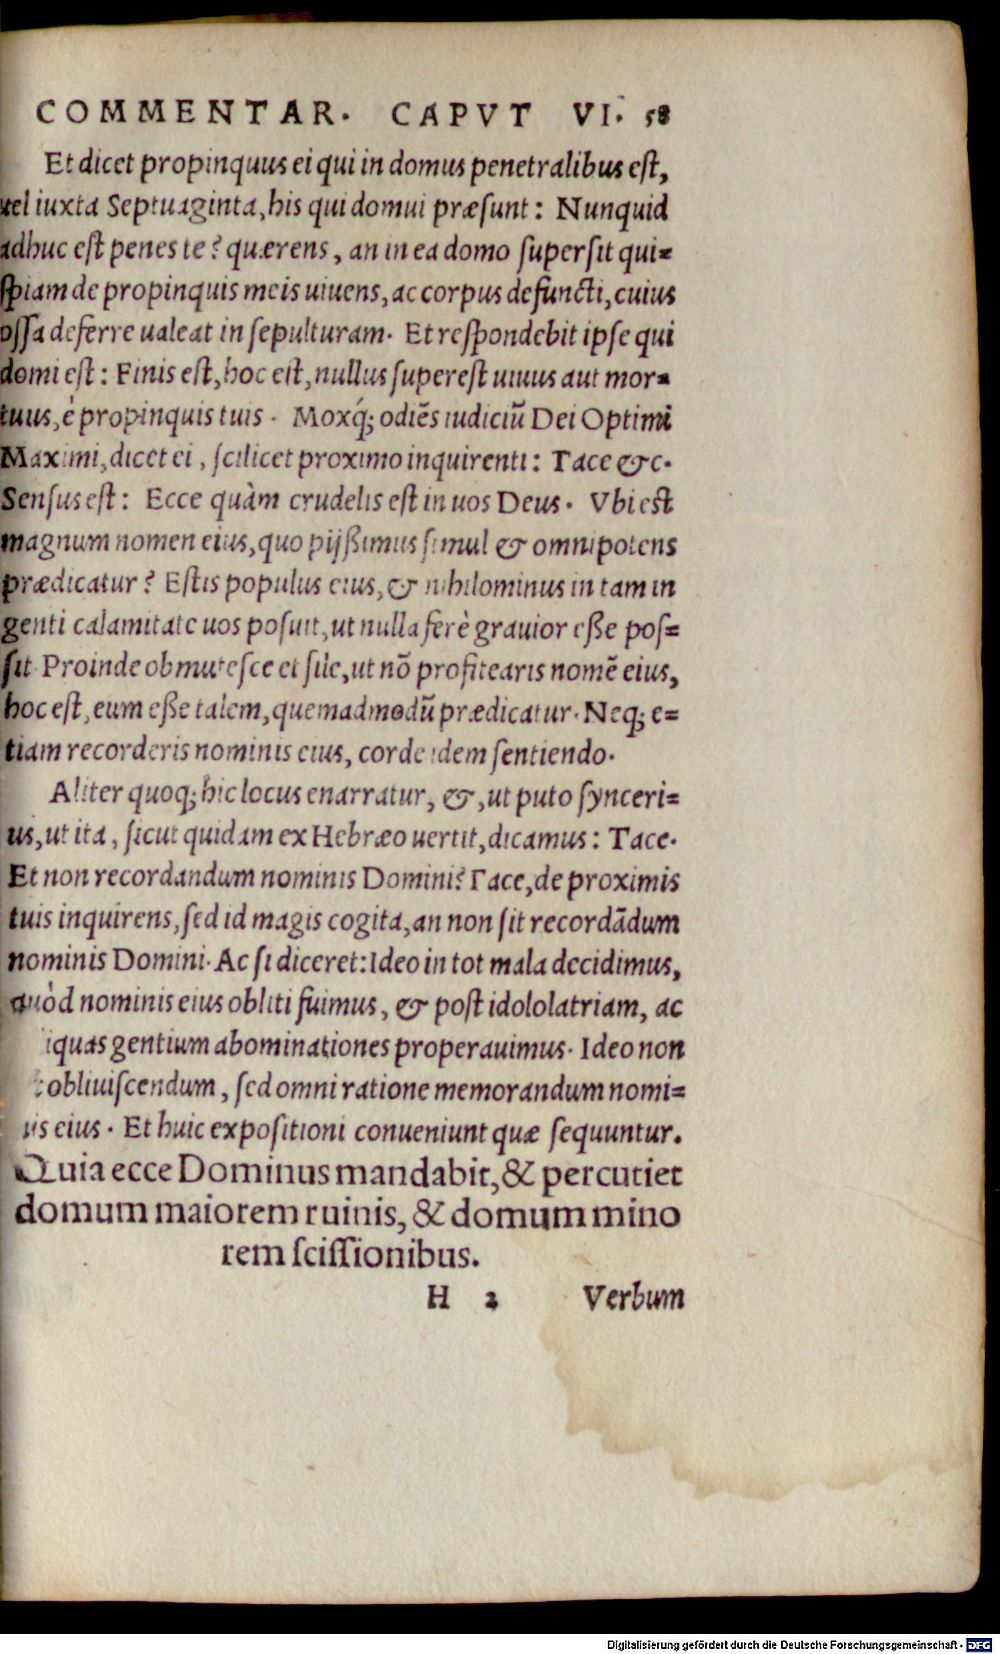 COMMENTAR. CAPVT VI. 58
Et dicet propinquus ei qui in domus penetralibus est,
uel iuxta Septuaginta, his qui domui præsunt: Nunquid
adhuc est penes te? quærens, an in ea domo supersit qui=
spiam de propinquis meis uiuens, ac corpus defuncti, cuius
ossa deferre ualeat in sepulturam. Et respondebit ipse qui
domi est: Finis est, hoc est, nullus superest uiuus aut mor=
tuus, è propinquis tuis. Moxq́; odiēs iudiciū Dei Optimi
Maximi, dicet ei, scilicet proximo inquirenti: Tace &c.
Sensus est: Ecce quàm crudelis est in uos Deus. Vbi est
magnum nomen eius, quo pijßimus simul & omnipotens
prædicatur? Estis populus eius, & nihilominus in tam in
genti calamitate uos posuit, ut nulla ferè grauior eße pos=
sit. Proinde obmutesce et sile, ut nō profitearis nomē eius,
hoc est, eum eße talem, quemadmodū prædicatur. Neq; e=
tiam recorderis nominis eius, corde idem sentiendo.
Aliter quoq; hic locus enarratur, &, ut puto synceri=
us, ut ita, sicut quidam ex Hebræo uertit, dicamus: Tace.
Et non recordandum nominis Domini? Tace, de proximis
tuis inquirens, sed id magis cogita, an non sit recordādum
nominis Domini. Ac si diceret: Ideo in tot mala decidimus,
quòd nominis eius obliti fuimus, & post idololatriam, ac
iquas gentium abominationes properauimus. Ideo non
obliuiscendum, sed omni ratione memorandum nomi=
is eius. Et huic expositioni conueniunt quæ sequuntur.
Quia ecce Dominus mandabit, & percutiet
domum maiorem ruinis, & domum mino
rem scissionibus.
H 2 Verbum
Digitalisierung gefördert durch die Deutsche Forschungsgemeinschaft - DFG